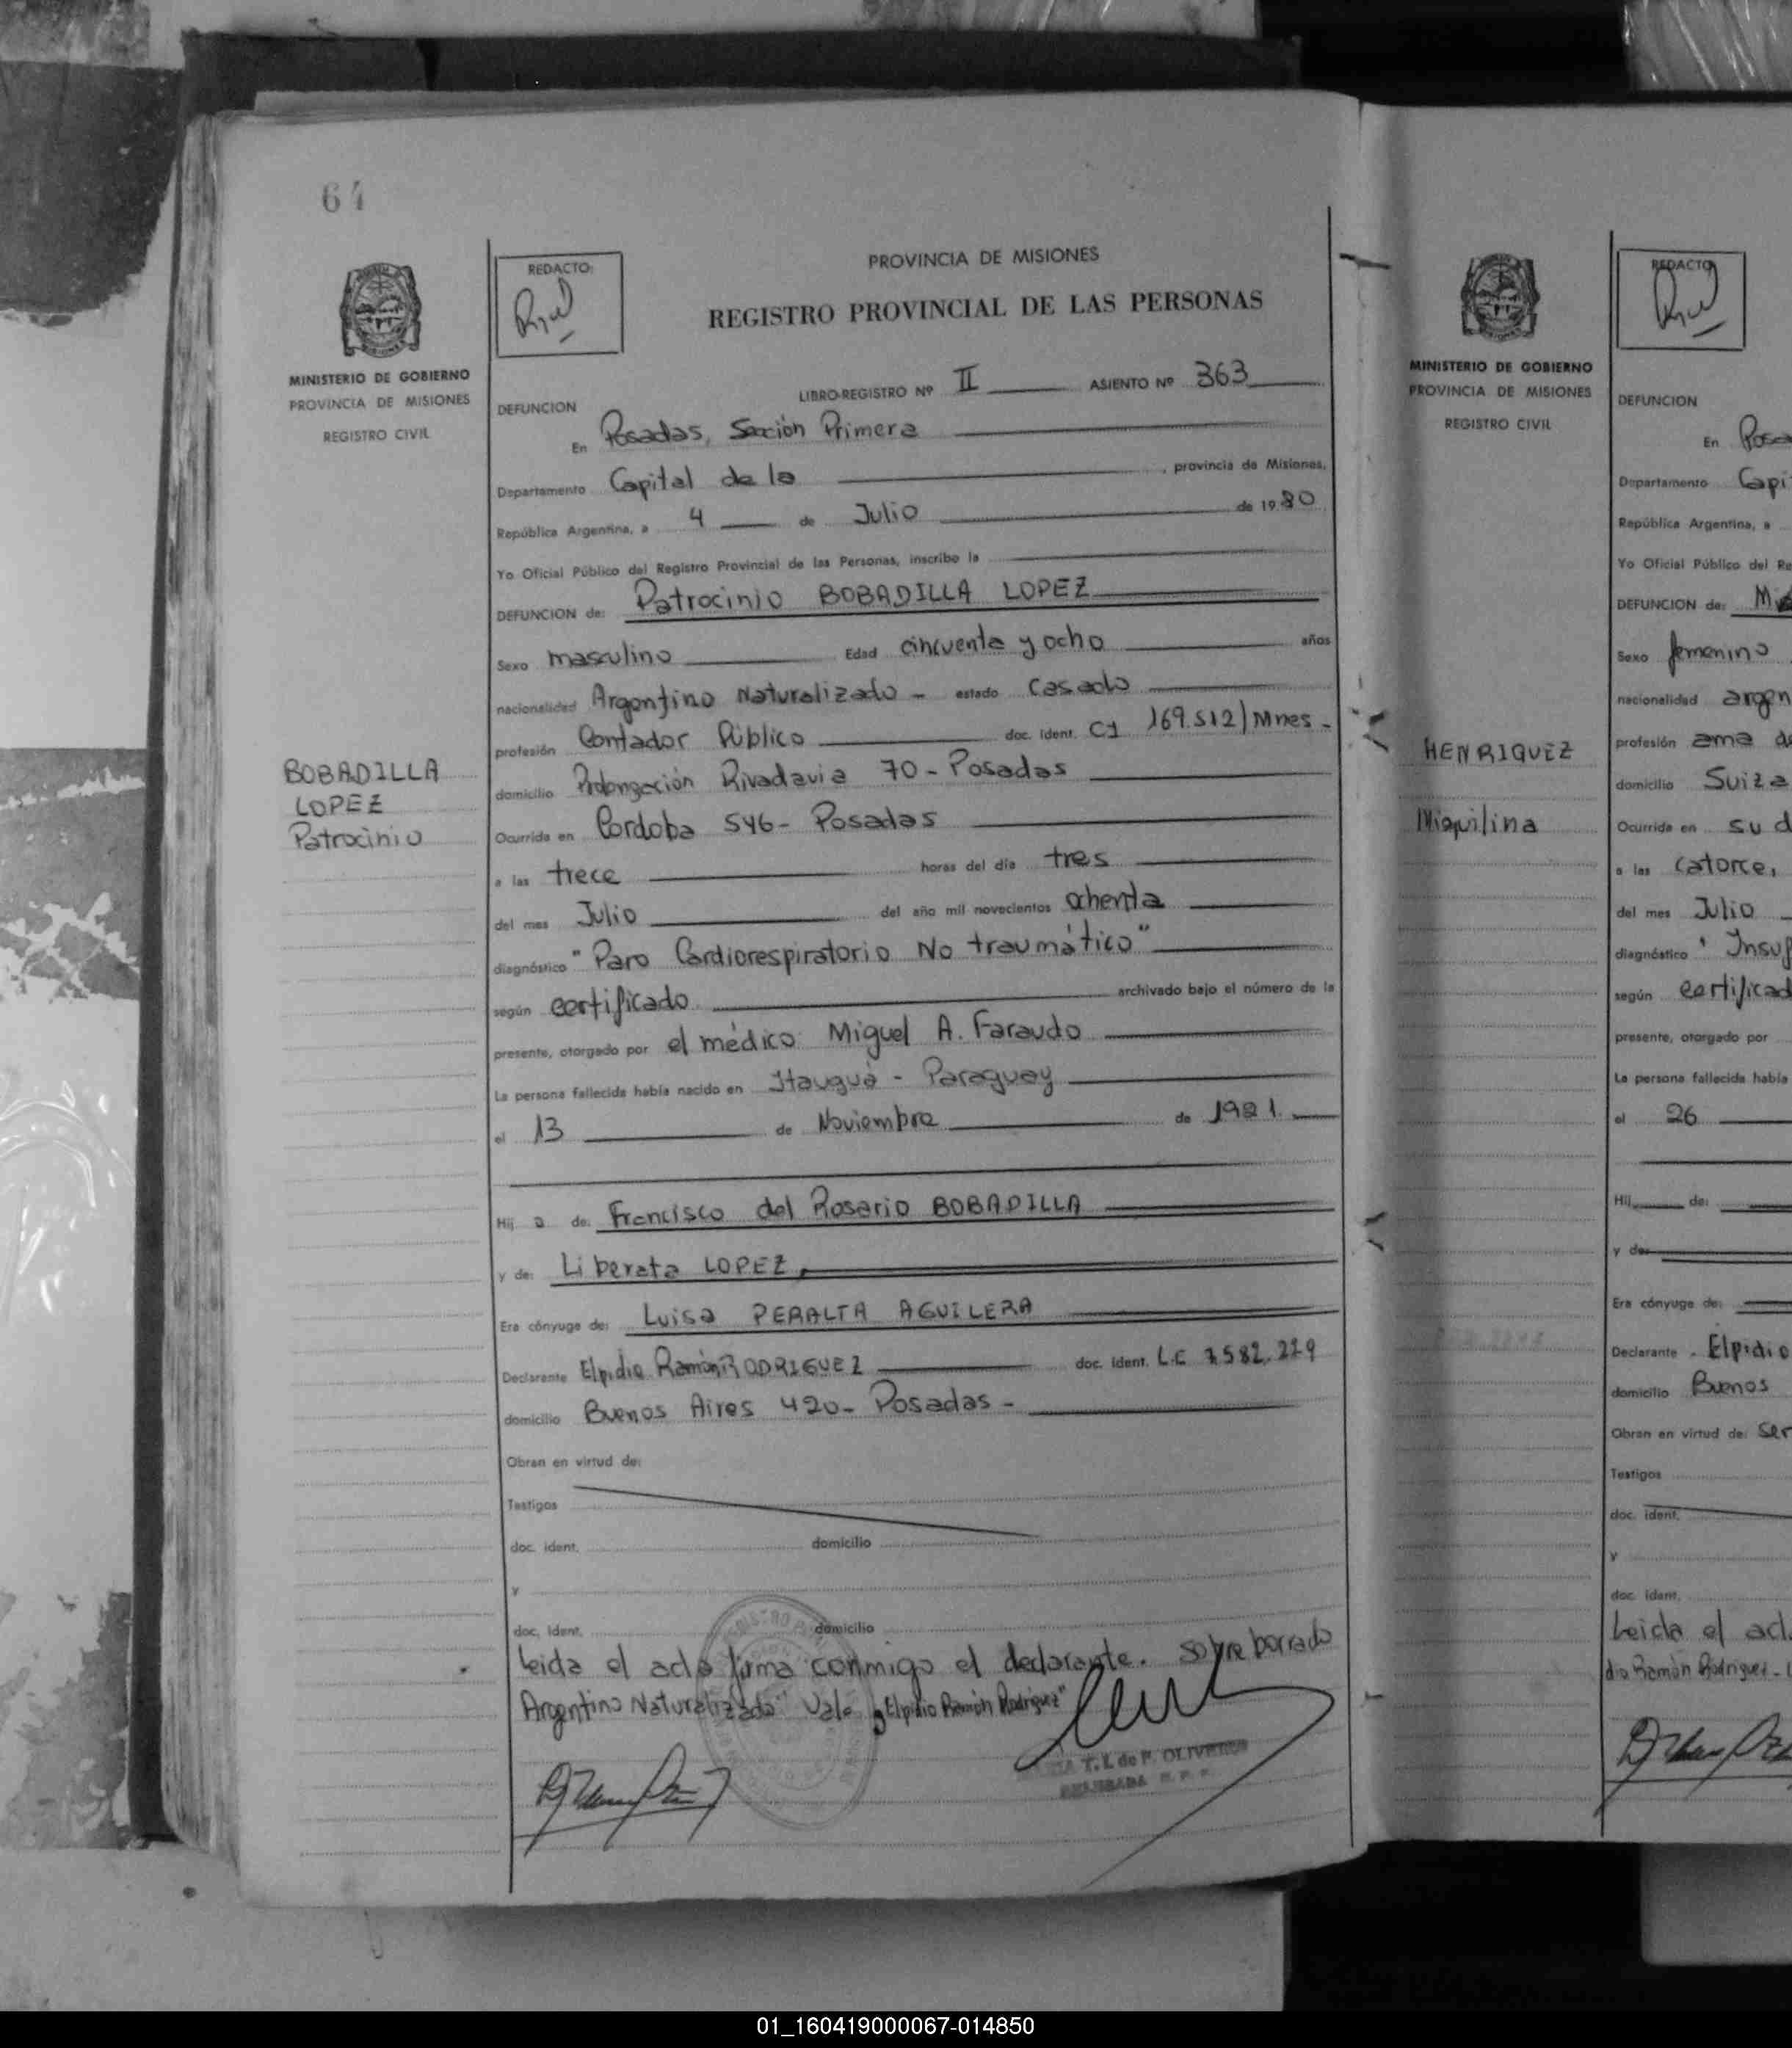 64
MINISTERIO DE GOBIERNO
PROVINCIA DE MISIONES
REGISTRO CIVIL
BOBADILLA
LOPEZ
Patrocinio
REDACTO:
PROVINCIA DE MISIONES
REGISTRO PROVINCIAL DE LAS PERSONAS
LIBRO-REGISTRO Nº II ASIENTO Nº 363
DEFUNCION
En Posadas, Sección Primera
Departamento Capital de la , provincia de Misiones,
República Argentina, a 4 de Julio de 1980
Yo Oficial Público del Registro Provincial de las Personas, inscribo la
DEFUNCION de: Patrocinio BOBADILLA LOPEZ
Sexo masculino Edad cincuenta y ocho años
nacionalidad Argentino Naturalizado - estado casado
profesión Contador Público doc. ident. C1 169.512/Mnes -
domicilio Prolongación Rivadavia 70 - Posadas
Ocurrida en Cordoba 546 - Posadas
a las trece horas del día tres
del mes Julio del año mil novecientos ochenta
diagnóstico "Paro Cardiorespiratorio No traumático"
según certificado archivado bajo el número de la
presente, otorgado por el médico Miguel A. Faraudo
La persona fallecida había nacido en Itauguá - Paraguay
el 13 de Noviembre de 1921.
Hij o de: Francisco del Rosario BOBADILLA
y de: Liberata LOPEZ
Era cónyuge de: Luisa PERALTA AGUILERA
Declarante Elpidio Ramón RODRIGUEZ doc. ident. L.E 7.582.229
domicilio Buenos Aires 420 - Posadas -
Obran en virtud de:
Testigos
doc. ident. domicilio
y
doc. ident. domicilio
Leida el acta firma conmigo el declarante. Sobre borrado
Argentino Naturalizado" Vale "Elpidio Ramón Rodriguez"
T. I. de F. OLIVEIRA
DELEGADA
MINISTERIO DE GOBIERNO
PROVINCIA DE MISIONES
REGISTRO CIVIL
HENRIQUEZ
Miquilina
REDACTO
DEFUNCION
En Posa
Departamento Capi
República Argentina, a
Yo Oficial Público del Re
DEFUNCION de:
Sexo femenino
nacionalidad argen
profesión ama d
domicilio Suiza
Ocurrida en su d
a las catorce,
del mes Julio
diagnóstico "Insuf
según certificad
presente, otorgado por
La persona fallecida había
el 26
Hij de:
y de:
Era cónyuge de:
Declarante Elpidio
domicilio Buenos
Obran en virtud de: ser
Testigos
doc. ident.
y
doc. ident.
Leida el act
dio Ramón Rodriguez.
01_160419000067-014850